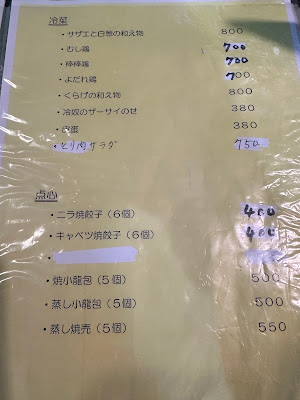 冷菜
・サザエと白葱の和え物 800
・むし鶏 700
・棒棒鶏 700
・よだれ鶏 700
・くらげの和え物 800
・冷奴のザーサイのせ 380
・皮蛋 380
・とり肉サラダ 750
点心
・ニラ焼餃子（6個） 400
・キャベツ焼餃子（6個） 400
・焼小龍包（5個） 500
・蒸し小龍包（5個） 500
・蒸し焼売（5個） 550